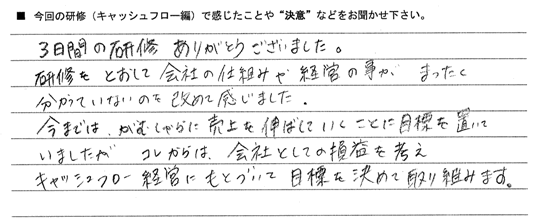 ■ 今回の研修（キャッシュフロー編）で感じたことや“決意”などをお聞かせ下さい。
3日間の研修 ありがとうございました。
研修を とおして 会社の仕組みや 経営の事が まったく
分かっていないのを 改めて感じました．
今までは、がむしゃらに 売上を 伸ばしていくことに目標を置いて
いましたが コレからは、会社としての損益を考え
キャッシュフロー経営にもとづいて 目標を決めて取り組みます。